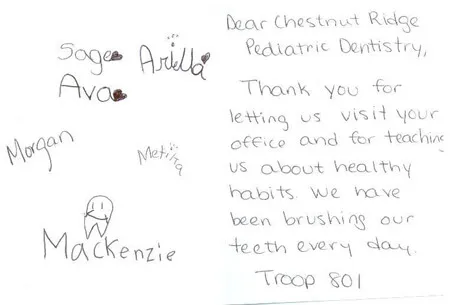 Sage Ariella
Ava
Morgan
Metika
Mackenzie
Dear Chestnut Ridge
Pediatric Dentistry,
Thank you for
letting us visit your
office and for teaching
us about healthy
habits. We have
been brushing our
teeth every day.
Troop 801